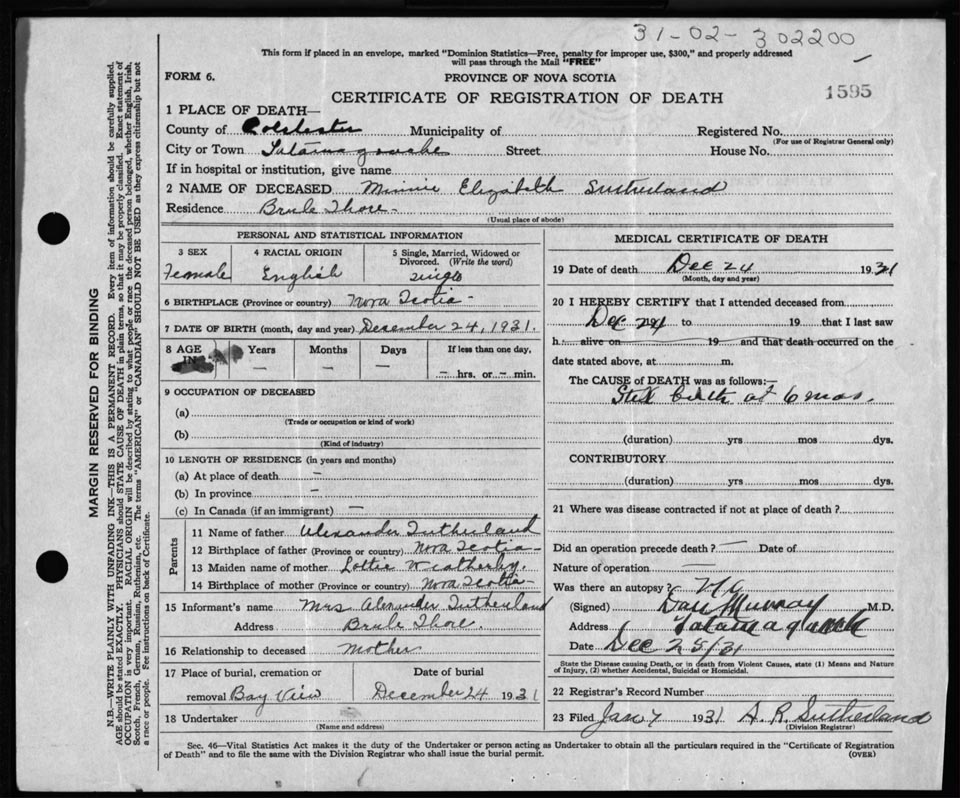 31-02-302200
This form if placed in an envelope, marked "Dominion Statistics—Free, penalty for improper use, $300," and properly addressed
will pass through the Mail "FREE"
FORM 6.
PROVINCE OF NOVA SCOTIA
CERTIFICATE OF REGISTRATION OF DEATH
1595
1 PLACE OF DEATH—
County of Colchester Municipality of Registered No.
(For use of Registrar General only)
City or Town Tatamagouche Street House No.
If in hospital or institution, give name
2 NAME OF DECEASED Minnie Elizabeth Sutherland
Residence Brule Shore -
(Usual place of abode)
PERSONAL AND STATISTICAL INFORMATION
3 SEX 4 RACIAL ORIGIN 5 Single, Married, Widowed or
Divorced. (Write the word)
Female English single
6 BIRTHPLACE (Province or country) Nova Scotia -
7 DATE OF BIRTH (month, day and year) December 24, 1931.
8 AGE Years Months Days If less than one day.
IN
— — — — hrs. or — min.
9 OCCUPATION OF DECEASED
(a)
(Trade or occupation or kind of work)
(b)
(Kind of industry)
10 LENGTH OF RESIDENCE (in years and months)
(a) At place of death —
(b) In province —
(c) In Canada (if an immigrant) —
Parents
11 Name of father Alexander Sutherland
12 Birthplace of father (Province or country) Nova Scotia -
13 Maiden name of mother Lottie Weatherby.
14 Birthplace of mother (Province or country) Nova Scotia -
15 Informant's name Mrs Alexander Sutherland
Address Brule Shore.
16 Relationship to deceased Mother
17 Place of burial, cremation or Date of burial
removal Bay View December 24 1931
18 Undertaker
(Name and address)
MEDICAL CERTIFICATE OF DEATH
19 Date of death Dec 24 1931
(Month, day and year)
20 I HEREBY CERTIFY that I attended deceased from
Dec 24 to 19 that I last saw
h alive on 19 and that death occurred on the
date stated above, at m.
The CAUSE of DEATH was as follows:—
Still birth at 6 mos.
(duration) yrs mos dys.
CONTRIBUTORY
(duration) yrs mos dys.
21 Where was disease contracted if not at place of death?
Did an operation precede death? — Date of
Nature of operation —
Was there an autopsy? No
(Signed) Dan Murray M.D.
Address Tatamagouche
Date Dec 25/31
State the Disease causing Death, or in death from Violent Causes, state (1) Means and Nature
of Injury, (2) whether Accidental, Suicidal or Homicidal.
22 Registrar's Record Number
23 Filed Jan 7 1931 A. R. Sutherland
(Division Registrar)
Sec. 46—Vital Statistics Act makes it the duty of the Undertaker or person acting as Undertaker to obtain all the particulars required in the "Certificate of Registration
of Death" and to file the same with the Division Registrar who shall issue the burial permit. (OVER)
MARGIN RESERVED FOR BINDING
N.B.—WRITE PLAINLY WITH UNFADING INK—THIS IS A PERMANENT RECORD. Every item of information should be carefully supplied.
AGE should be stated EXACTLY. PHYSICIANS should STATE CAUSE OF DEATH in plain terms, so that it may be properly classified. Exact statement of
OCCUPATION is very important. RACIAL ORIGIN will be described by stating to what people or race the deceased person belonged, whether English, Irish,
Scotch, French, German, Russian, Ruthenian, etc. The terms "AMERICAN" or "CANADIAN" SHOULD NOT BE USED as they express citizenship but not
a race or people. See instructions on back of Certificate.